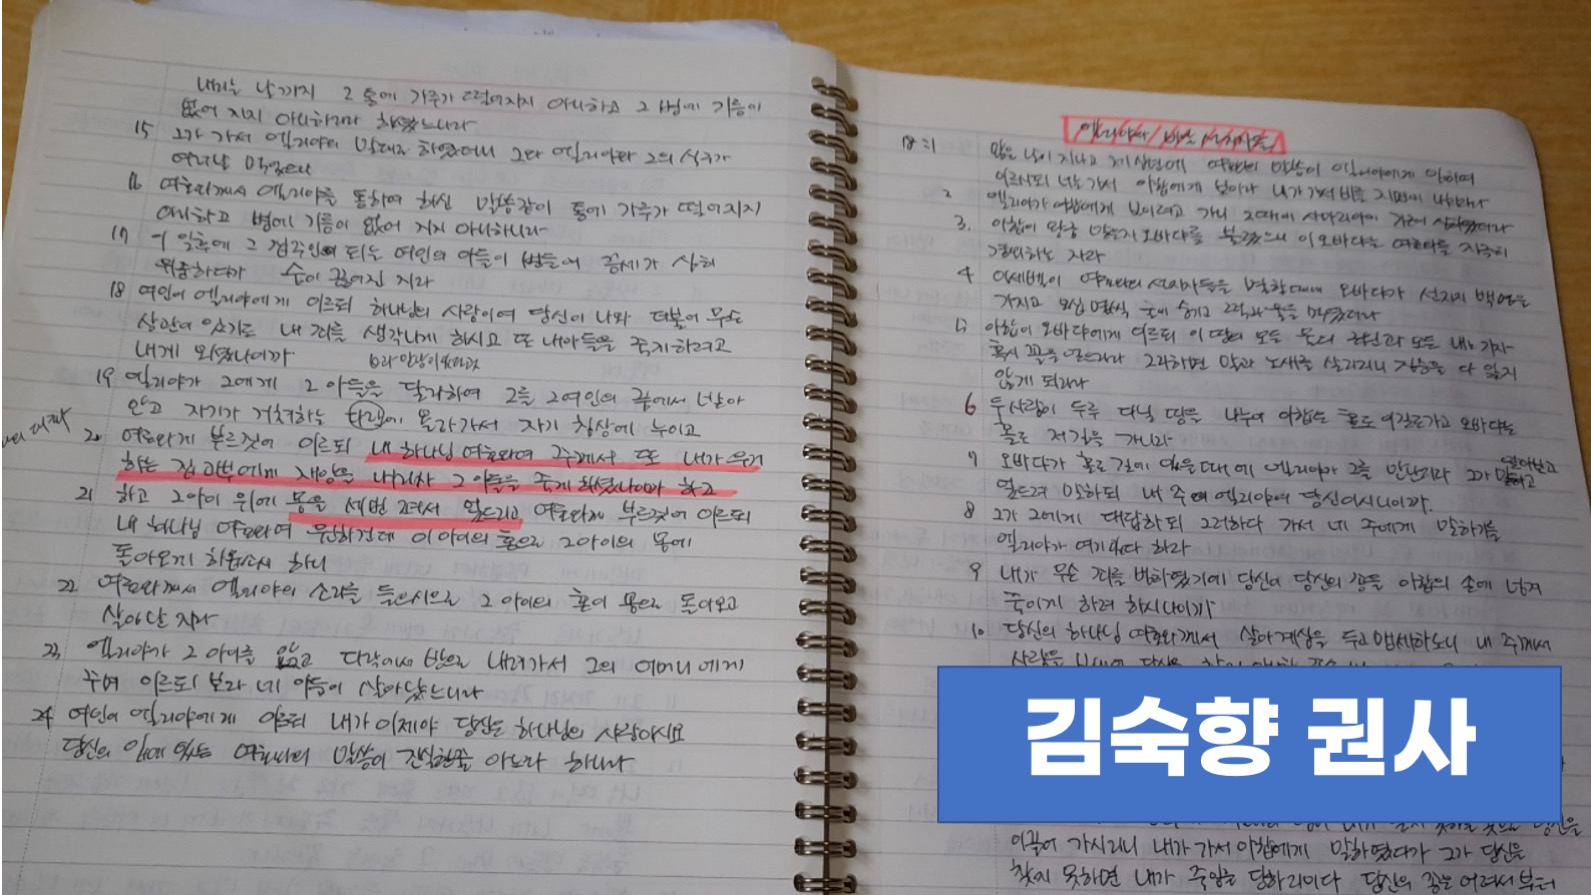 내리는 날까지 그 통에 가루가 떨어지지 아니하고 그 병에 기름이
없어 지지 아니하리라 하셨느니라
15 그가 가서 엘리야의 말대로 하였더니 그와 엘리야와 그의 식구가
여러날 먹었으나
16 여호와께서 엘리야를 통하여 하신 말씀같이 통에 가루가 떨어지지
아니하고 병에 기름이 없어 지지 아니하니라
17 이 일후에 그 집주인 되는 여인의 아들이 병들어 증세가 심히
위중하다가 숨이 끊어진 지라
18 여인이 엘리야에게 이르되 하나님의 사람이여 당신이 나와 더불어 무슨
상관이 있기로 내 죄를 생각나게 하시고 또 내아들을 죽게하려고
내게 오셨나이까
19 엘리야가 그에게 그 아들을 달라하여 그를 그여인의 품에서 받아
안고 자기가 거처하는 다락에 올라가서 자기 침상에 누이고
20 여호와께 부르짖어 이르되 내 하나님 여호와여 주께서 또 내가 우거
하는 집 과부에게 재앙을 내리사 그 아들을 죽게 하셨나이까 하고
21 하고 그아이 위에 몸을 세번 펴서 엎드리고 여호와께 부르짖어 이르되
내 하나님 여호와여 원하건데 이 아이의 혼으로 그아이의 몸에
돌아오게 하옵소서 하니
22 여호와께서 엘리야의 소리를 들으시므로 그 아이의 혼이 몸으로 돌아오고
살아난 지라
23 엘리야가 그 아이를 안고 다락에서 방으로 내려가서 그의 어머니에게
주며 이르되 보라 네 아들이 살아났느니라
24 여인이 엘리야에게 이르되 내가 이제야 당신은 하나님의 사람이시요
당신의 입에 있는 여호와의 말씀이 진실한줄 아노라 하니라
18:1 많은 날이 지나고 제삼년에 여호와의 말씀이 엘리야에게 임하여
이르시되 너는 가서 아합에게 보이라 내가 비를 지면에 내리리라
2 엘리야가 아합에게 보이려고 가니 그때에 사마리아에 기근이 심하였더라
3. 아합이 왕궁 맡은자 오바댜를 불렀으니 이 오바댜는 여호와를 지극히
경외하는 자라
4 이세벨이 여호와의 선지자들을 멸할때에 오바댜가 선지자 백명을
가지고 오십 명씩 굴에 숨기고 떡과 물을 먹였더라
5 아합이 오바댜에게 이르되 이 땅의 모든 물의 근원과 모든 내로 가자
혹시 꼴을 얻으리라 그리하면 말과 노새를 살리리니 짐승을 다 잃지
않게 되리라
6 두사람이 두루 다닐 땅을 나누어 아합은 홀로 이길로가고 오바댜는
홀로 저길로 가니라
7 오바댜가 길에 있을때에 엘리야가 그를 만난지라 그가 알아보고
엎드려 말하되 내 주 엘리야여 당신이시니이까.
8 그가 그에게 대답하되 그러하다 가서 네 주에게 말하기를
엘리야가 여기있다 하라
9 내가 무슨 죄를 범하였기에 당신이 당신의 종을 아합의 손에 넘겨
죽이게 하려 하시나이까
10 당신의 하나님 여호와께서 살아계심을 두고 맹세하노니 내 주께서
김숙향 권사
이끌어 가시리니 내가 가서 아합에게 말하였다가 그가 당신을
찾지 못하면 내가 죽임을 당하리이다 당신의 종은 어려서부터